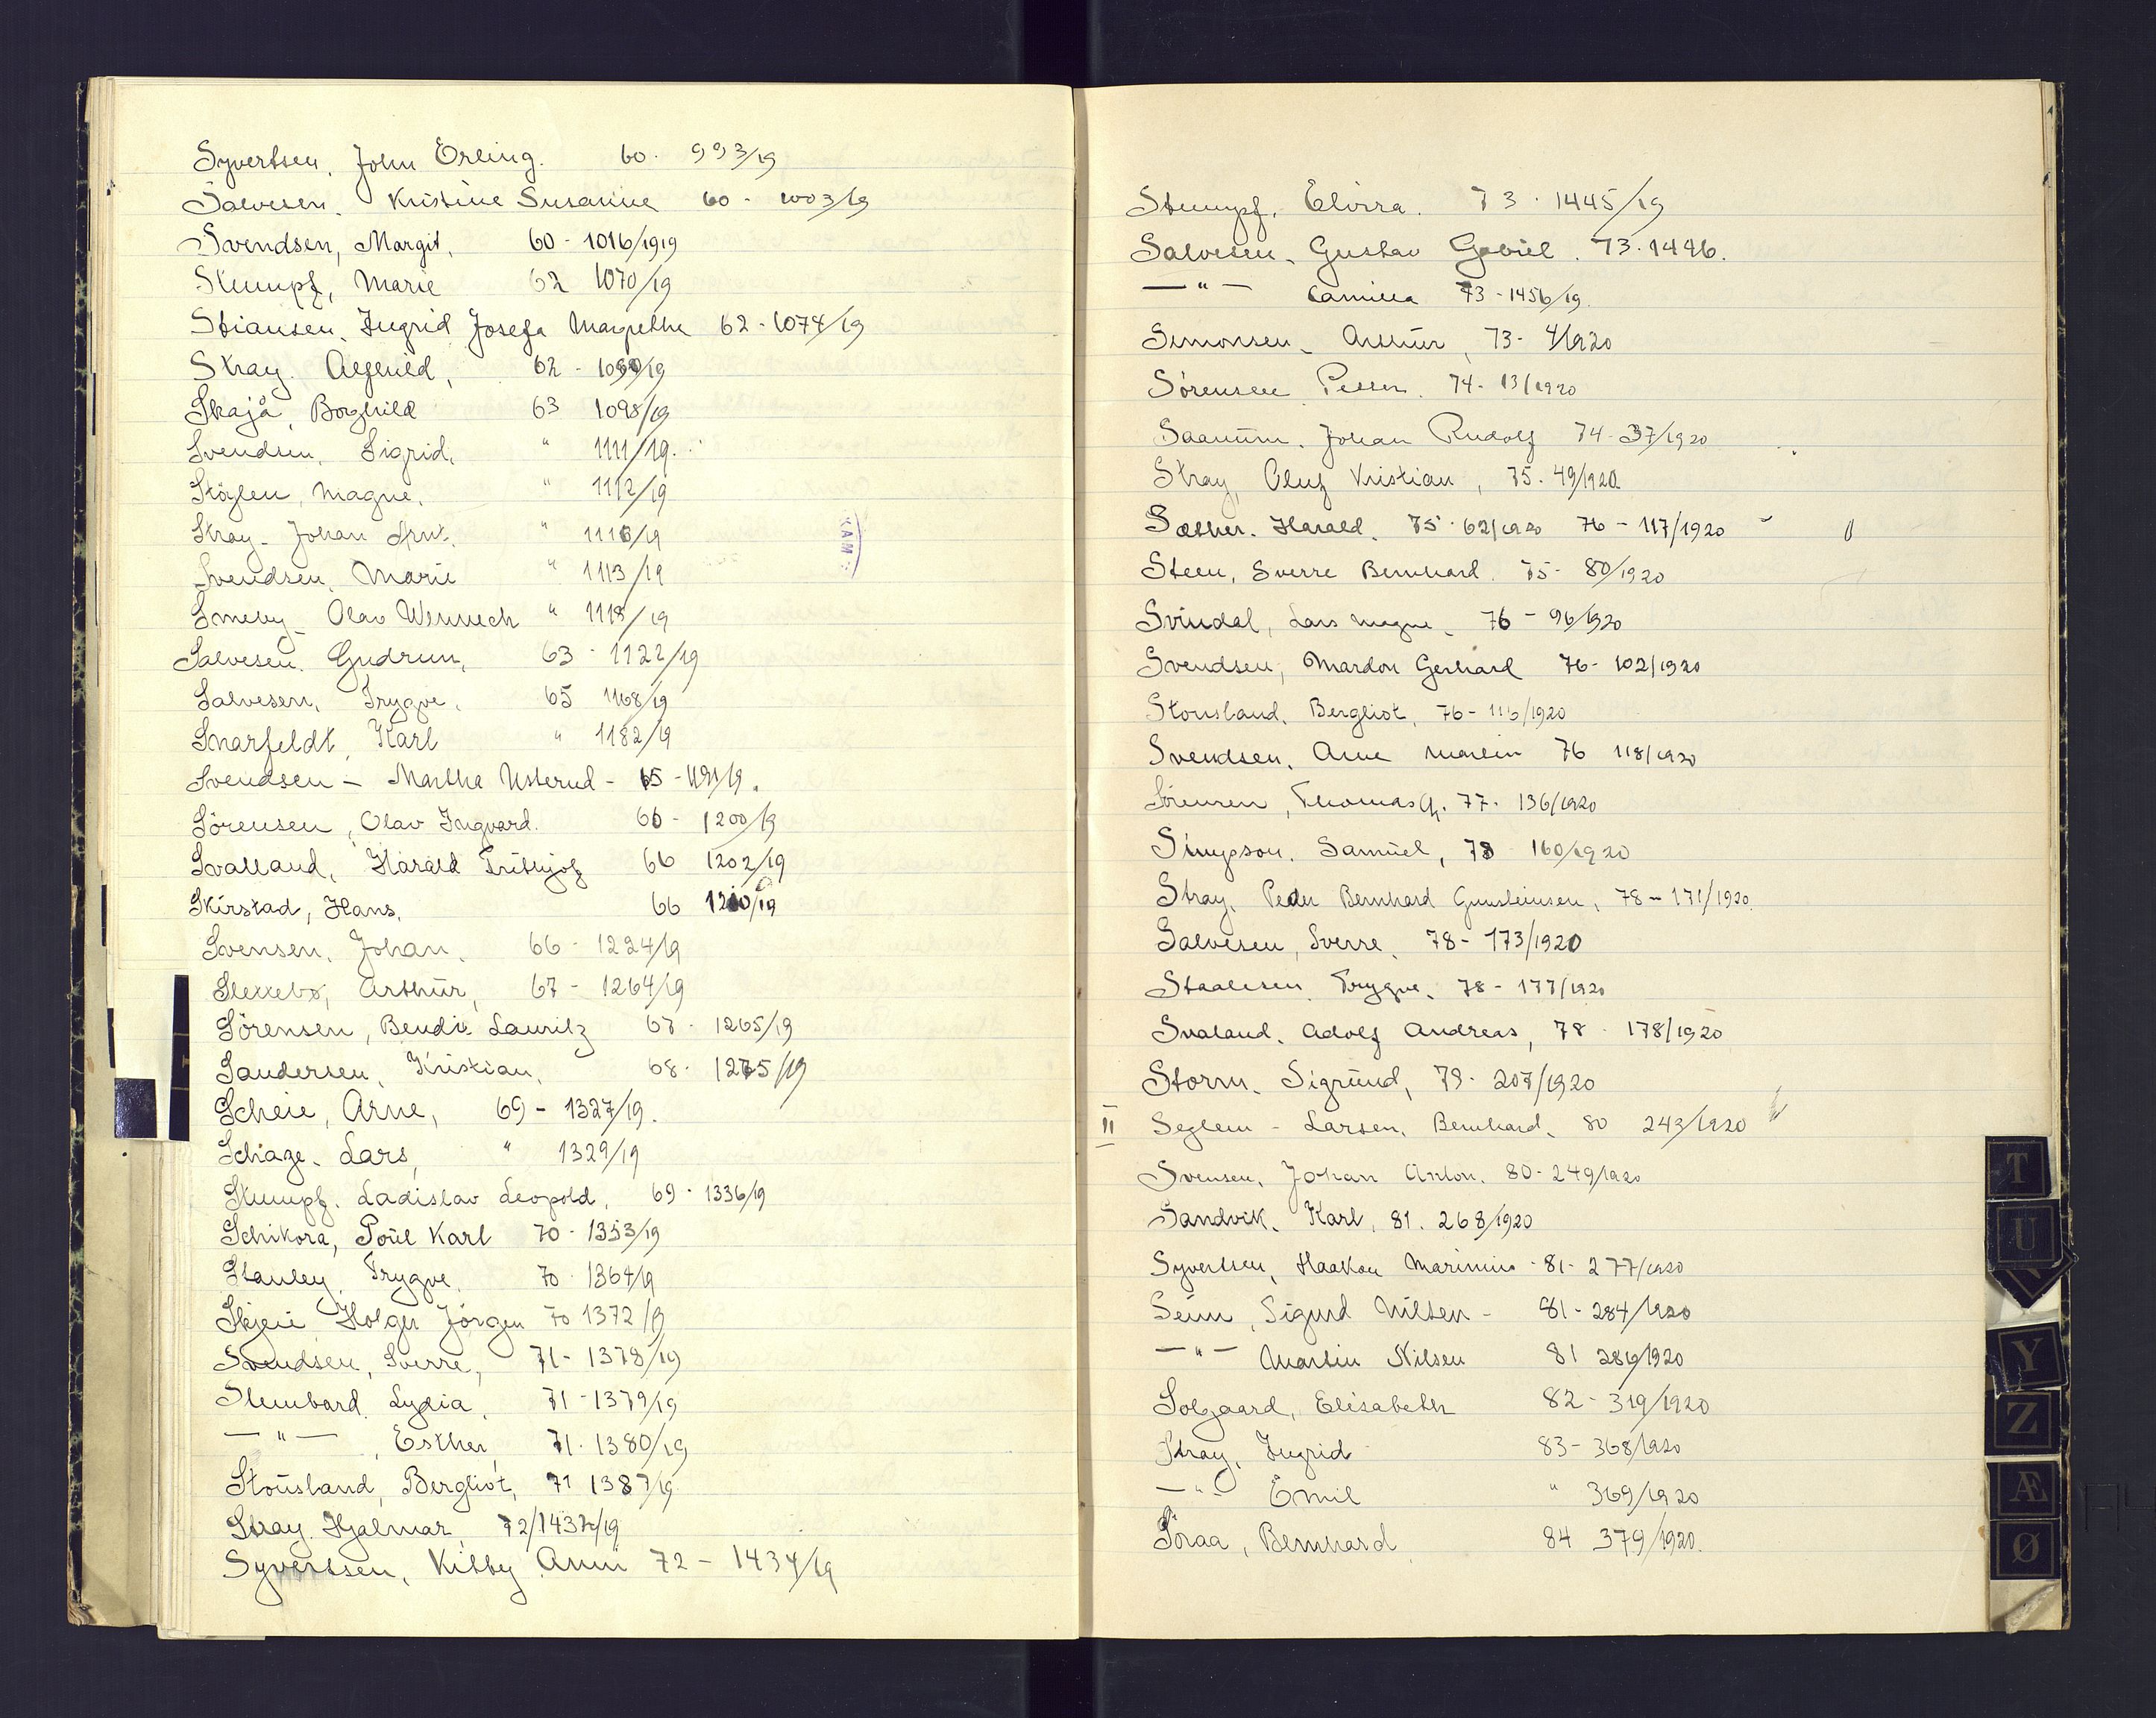 Syvertsen, John Erling. 60. 993/19
Salvesen, Kristine Susanne 60 - 1003/19
Svendsen, Margit, 60 - 1016/1919
Stumpf, Marie 62 1070/19
Stiansen, Ingrid Josefa Margrethe 62 - 1074/19
Stray. Alfhild, 62 - 1090/19
Skajå, Borghild 63 1098/19
Svendsen, Sigrid, " 1111/19.
Støylen, Magne, " 1112/19
Stray - Johan Arnt. " 1116/19
Svendsen, Marie " 1113/19
Smeby - Olav Wennech " 1118/19
Salvesen. Gudrun, 63 - 1122/19
Salvesen, Trygve, 65 1168/19
Snarfeldt, Karl " 1182/19
Svendsen - Martha Usterud - 65 - 1191/19.
Sörensen, Olav Ingvard. 66 - 1200/19
Svalland, Harald Frithjof 66 1202/19
Skirstad, Hans, 66 1210/19
Svensen, Johan, 66 - 1224/19
Slettebø, Arthur, 67 - 1264/19
Sörensen, Bendix Lauritz 67 - 1265/19
Sandersen, Kristian, 68 - 1275/19
Scheie, Arne, 69 - 1327/19.
Schiage, Lars, " 1329/19
Stumpf. Ladislav Leopold, 69 - 1336/19
Schikora, Poul Karl 70 - 1353/19
Stanley, Trygve 70 - 1364/19
Skjeie Holger Jörgen 70 1372/19
Svendsen, Sverre, 71 - 1378/19
Stembord. Lydia, 71 - 1379/19
— " — , Esther, 71. 1380/19
Stousland, Bergliot, 71 1387/19
Stray. Hjalmar, 72/1432/19
Syvertsen, Kitty Anni 72 - 1434/19
KAM
Stumpf, Elvira. 73 - 1445/19
Salvesen, Gustav Gabriel. 73 - 1446.
— " — Camilla 73 - 1456/19.
Simonsen, Arthur, 73 - 4/1920
Sörensen Petter. 74 - 13/1920
Saanum, Johan Rudolf 74 - 37/1920
Stray, Oluf Kristian, 75. 49/1920
Sæther. Harald. 75 - 62/1920 76 - 117/1920
Steen, Sverre Bernhard. 75 - 80/1920
Svindal, Lars Magne, 76 - 96/1920
Svendsen, Mardon Gerhard 76 - 102/1920
Stousland, Bergliot, 76 - 116/1920
Svendsen, Arne Martin 76 118/1920
Sörensen, Thomas G. 77 - 136/1920
Simpson. Samuel, 78 160/1920
Stray, Peder Bernhard Gunsteinsen, 78 - 171/1920.
Salvesen, Sverre, 78 - 173/1920
Staalesen, Trygve, 78 - 177/1920
Svaland, Adolf Andreas, 78 - 178/1920
Storm, Sigrund, 79 - 207/1920
II Seglem - Larsen, Bernhard, 80 243/1920
Svensen, Johan Anton, 80 - 249/1920
Sandvik, Karl, 81. 268/1920
Syvertsen, Haakon Marinius - 81 - 277/1920
Seim, Sigurd Nilsen - 81 - 284/1920
— " — Martin Nilsen 81 286/1920
Solgaard, Elisabeth 82 - 319/1920
Stray, Ingrid 83 - 368/1920
— " — Emil " 369/1920
Straa, Bernhard 84 379/1920.
T
U
Y
Z
Æ
Ø